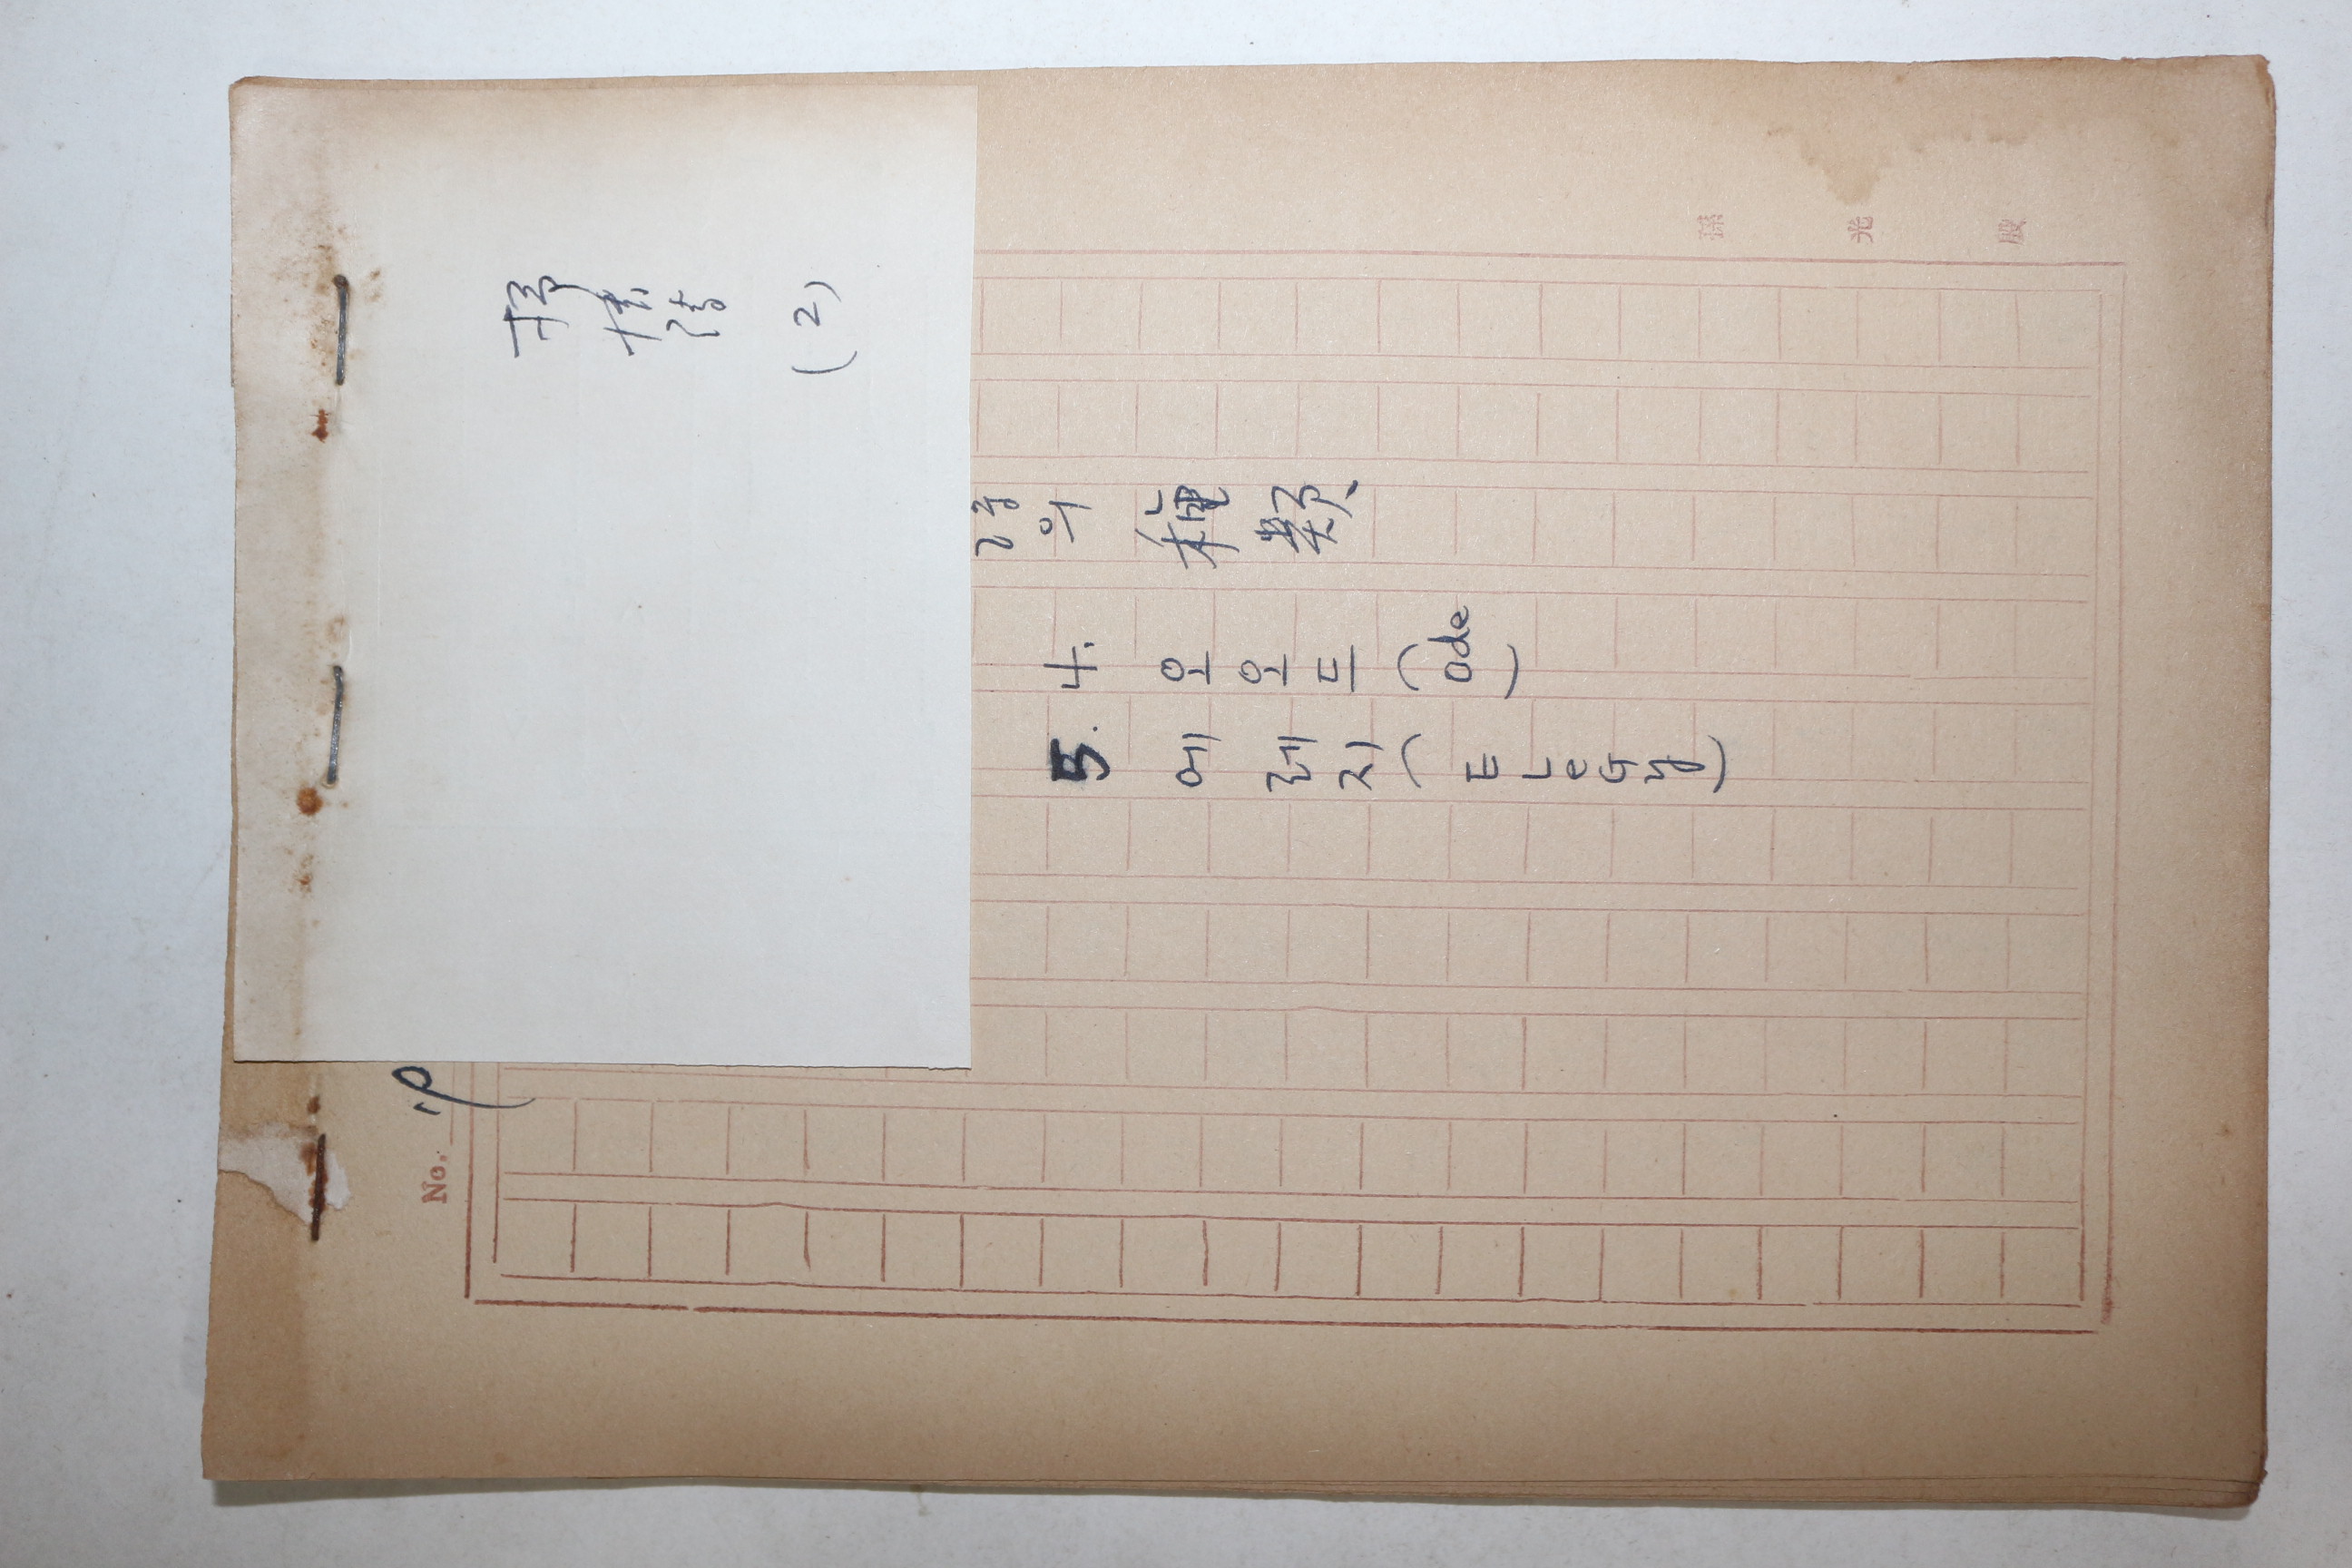 抒情詩 (2)
孫光殷
詩의 種類
4. 오오드 (Ode)
5. 에레지 (ELegy)
No.